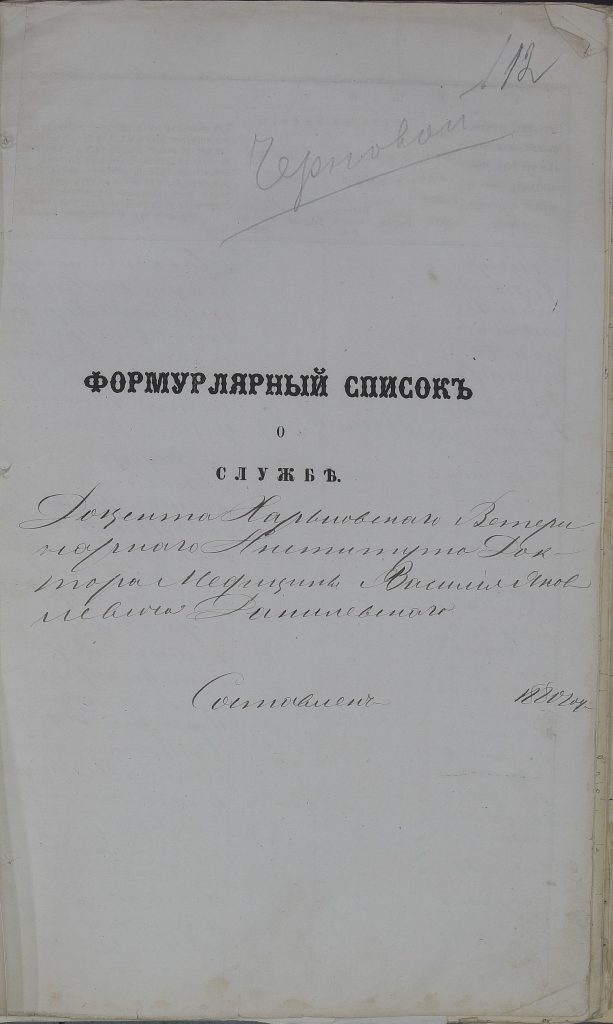 12
Черновой
ФОРМУРЛЯРНЫЙ СПИСОКЪ
О
СЛУЖБѢ.
Доцента Харьковскаго Ветери
нарнаго Института Док-
тора Медицины Василія Яков
левича Данилевскаго
Составленъ 1880 году